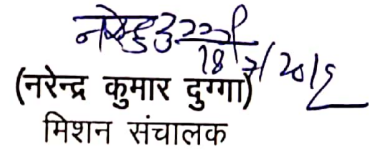 18/7/2019
(नरेन्द्र कुमार दुग्गा)
मिशन संचालक